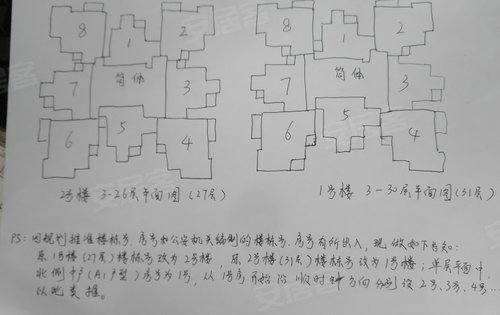 8 1 2 8 1 2
7 筒体 3 7 筒体 3
6 5 4 6 5 4
2号楼 3-26层平面图(27层) 1号楼 3-30层平面图(31层)
PS: 因规划批准楼栋号、房号和公安机关编制的楼栋号、房号有所出入, 现做如下告知:
原1号楼(27层)楼栋号改为2号楼, 原2号楼(31层)楼栋号改为1号楼; 单层平面中
北侧中户(A1户型)房号为1号, 从1号房开始沿顺时针方向分别设2号、3号、4号...
以此类推。